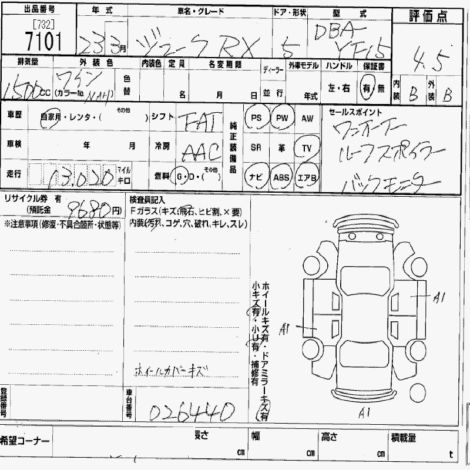 出品番号 年式 車名・グレード ドア・形状 型式 評価点
[732]
7101 23 3月 ジューク RX 5 DBA-YF15 4.5
排気量 外装色 内装色 定員 名変期限 ディーラー 外車モデル ハンドル 保証書
1500cc ワイン (カラーNo. NAH) 色替 名 月 日 並行 年式 左・右 有・無 内装 B 外装 B
車歴 自家用・レンタ・(その他) シフト FAT 純正装備品 PS PW AW セールスポイント
車検 年 月 冷房 AAC SR 革 TV ワンオーナー
走行 13,020 マイル キロ 燃料 G・D・(その他) ナビ ABS エアB ルーフスポイラー
バックモニター
リサイクル券 有 (預託金 9680円) 検査員記入
※注意事項(修復・不具合箇所・状態等) Fガラス(キズ、飛石、ヒビ割、×要)
内装(汚れ、コゲ、穴、破れ、キレ、スレ)
ホイールキズ有・ドアミラーキズ有
小キズ有・小凹有・補修有
A1
A1
ホイールカバーキズ
A1
登録番号 車台番号 026440
希望コーナー 長さ cm 幅 cm 高さ cm 積載量 t